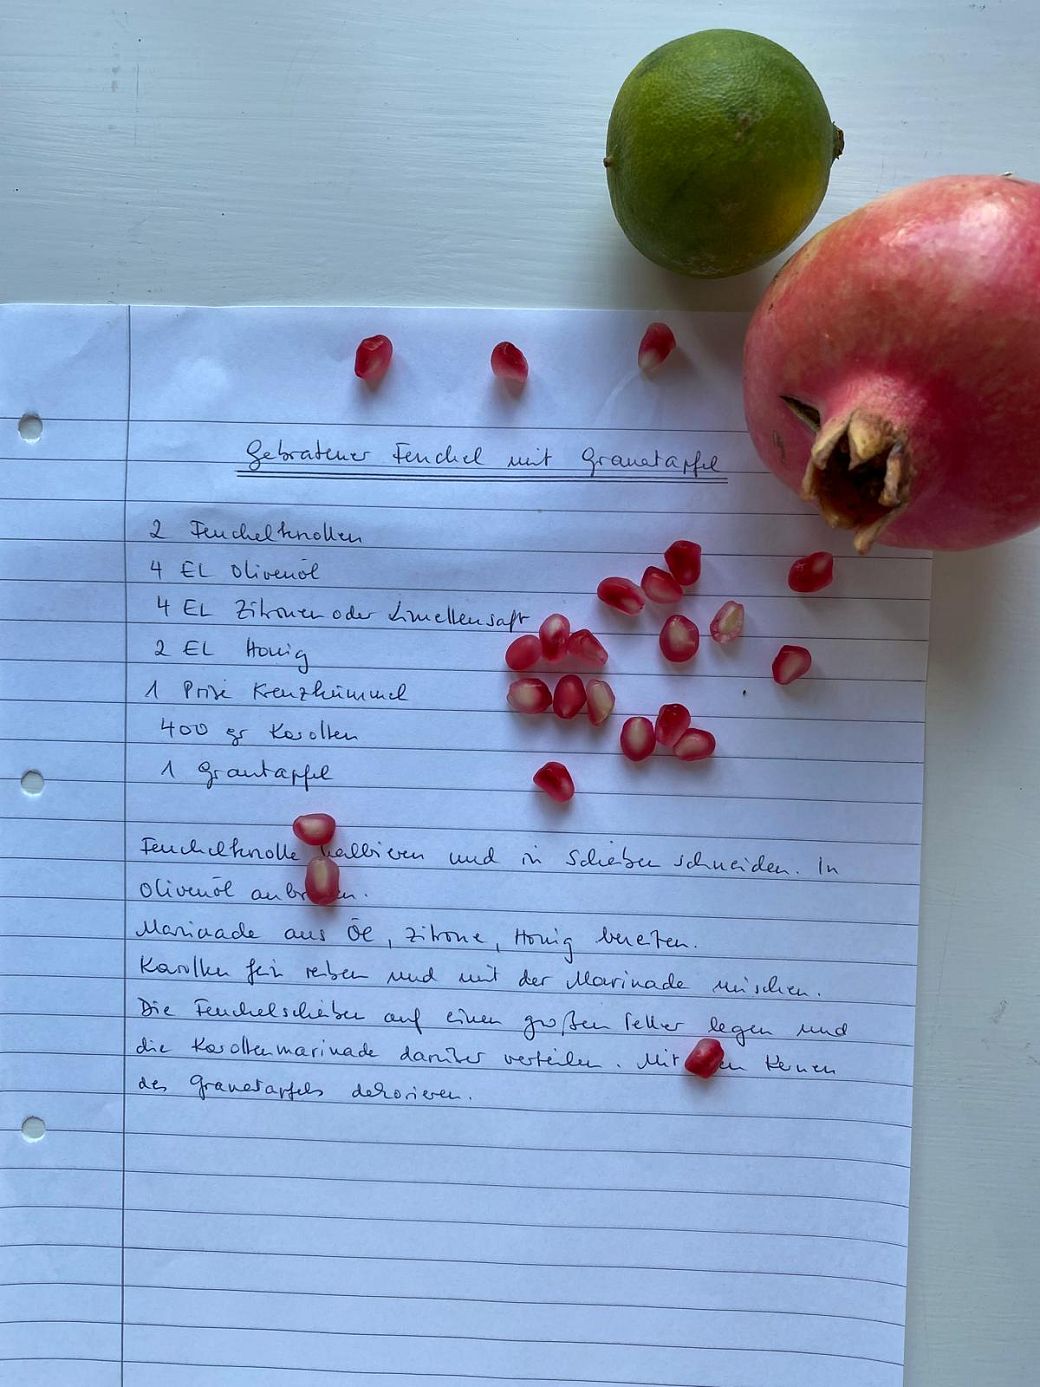 Gebratener Fenchel mit Granatapfel
2 Fenchelknollen
4 EL Olivenöl
4 EL Zitronen oder Limettensaft
2 EL Honig
1 Prise Kreuzkümmel
400 gr Karotten
1 Grantapfel
Fenchelknolle halbieren und in Scheiben schneiden. In
Olivenöl anbraten.
Marinade aus Öl, Zitrone, Honig bereiten.
Karotten fein reiben und mit der Marinade mischen.
Die Fenchelscheiben auf einen großen Teller legen und
die Karottenmarinade darüber verteilen. Mit den Kernen
des Granatapfels dekorieren.